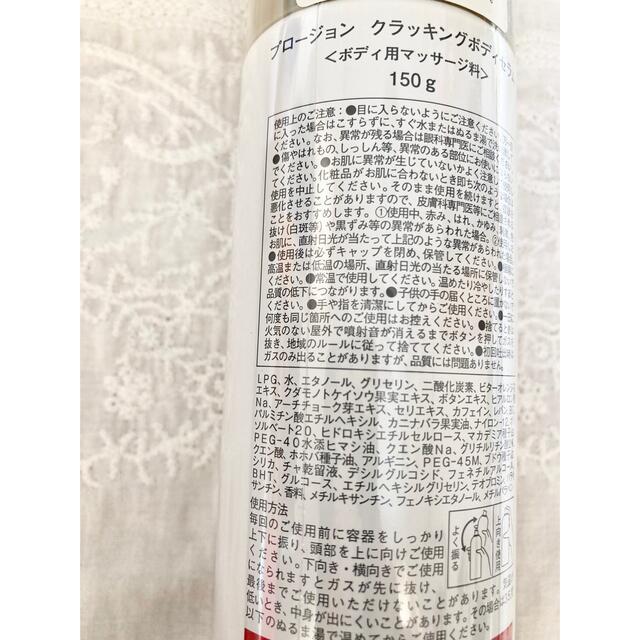 プロージョン クラッキングボディセラム
<ボディ用マッサージ料>
150g
使用上のご注意:●目に入らないようにご注意ください。
に入った場合はこすらずに、すぐ水またはぬるま湯で洗
ください。なお、異常が残る場合は眼科専門医にご相談く
●傷やはれもの、しっしん等、異常のある部位にお使いに
でください。●お肌に異常が生じていないかよく注意し
てください。化粧品がお肌に合わないとき即ち次のよう
使用を中止してください。そのまま使用を続けますと
悪化させることがありますので、皮膚科専門医等にご相
ことをおすすめします。①使用中、赤み、はれ、かゆみ、
抜け(白斑等)や黒ずみ等の異常があらわれた場合。②
お肌に、直射日光が当たって上記のような異常があらわれた
●使用後は必ずキャップを閉め、保管してください。
高温または低温の場所、直射日光の当たる場所に保管しない
ください。●常温で使用してください。温めたり冷やしたり
品質の低下につながります。●子供の手の届くところに置か
ください。●手や指を清潔にしてからご使用ください。●一
何度も同じ箇所へのご使用はお控えください。●捨てるとき
火気のない屋外で噴射音が消えるまでボタンを押してガス
抜き、地域のルールに従って捨ててください。●初回
ガスのみ出ることがありますが、品質には問題ありません。
LPG、水、エタノール、グリセリン、二酸化炭素、ビターオレンジ
エキス、クダモノトケイソウ果実エキス、ボタンエキス、ヒアルロン
Na、アーチチョーク芽エキス、セリエキス、カフェイン、レパン、
パルミチン酸エチルヘキシル、カニナバラ果実油、ナイロン-12、
ソルベート20、ヒドロキシエチルセルロース、マカデミア種子
PEG-40水添ヒマシ油、クエン酸Na、グリチルリチン酸
クエン酸、ホホバ種子油、アルギニン、PEG-45M、ブドウ種子
シリカ、チャ乾留液、デシルグルコシド、フェネチルアルコール、
BHT、グルコース、エチルヘキシルグリセリン、テオブロミン、
サンチン、香料、メチルキサンチン、フェノキシエタノール、メチルパラベン
使用方法
毎回のご使用前に容器をしっかり
上下に振り、頭部を上に向けご使用
ください。下向き・横向きでご使用
になられますとガスが先に抜け、
最後までご使用いただけないことがあります。
低いとき、中身が出にくいことがあります。その場合は
以下のぬるま湯で温めてからご使用
よく振る
上向き使用